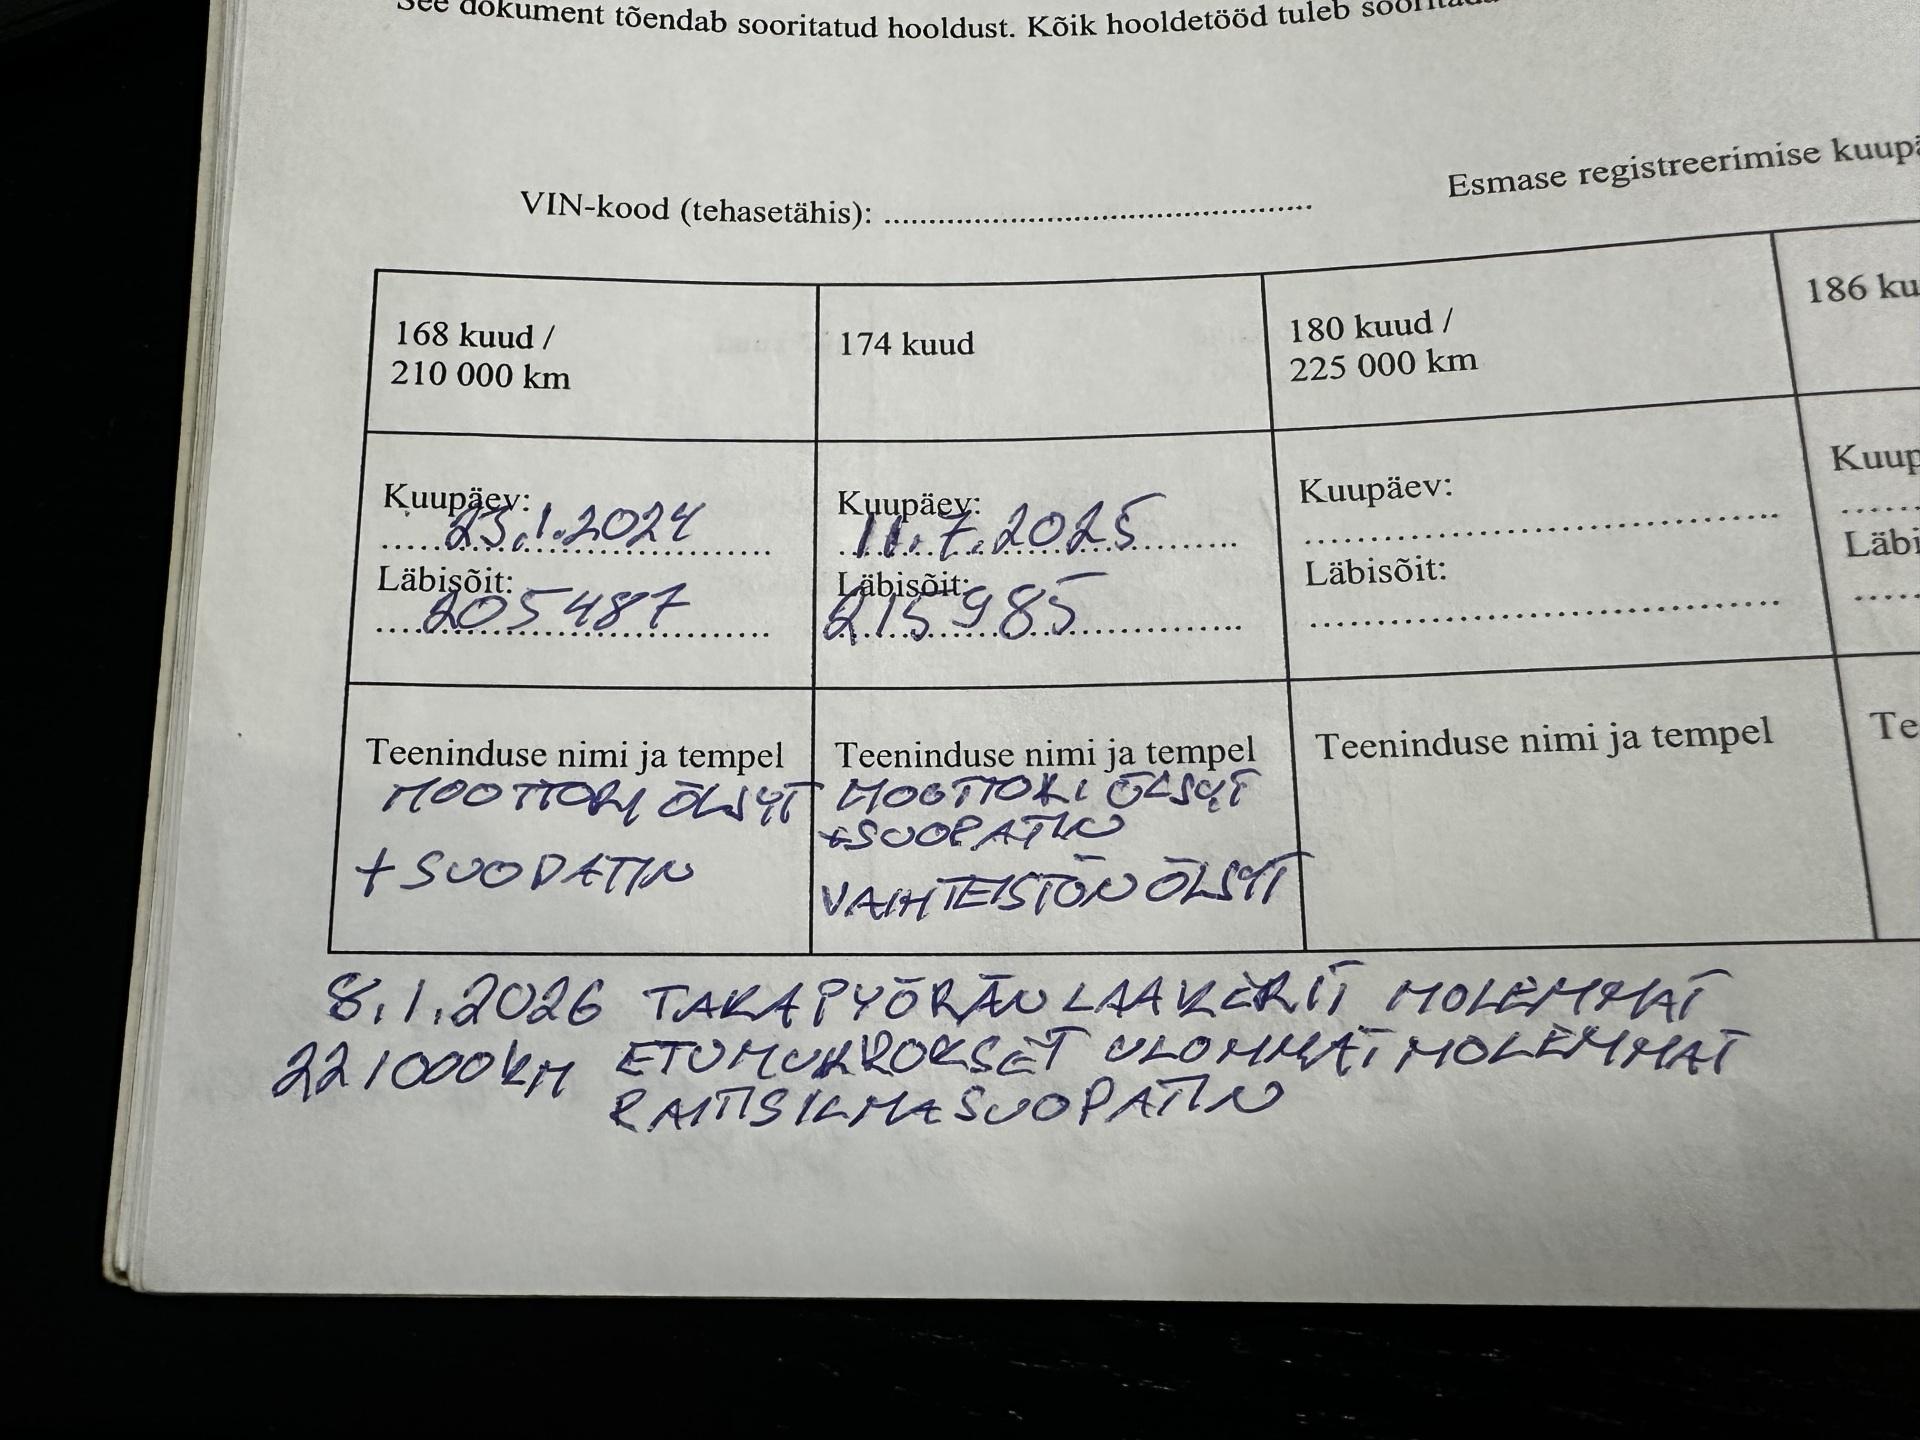 See dokument tõendab sooritatud hooldust. Kõik hooldetööd tuleb
VIN-kood (tehasetähis): ................................................
Esmase registreerimise
168 kuud /
210 000 km
174 kuud
180 kuud /
225 000 km
186
Kuupäev:
23.1.2024
Läbisõit:
205487
Kuupäev:
11.7.2025
Läbisõit:
215985
Kuupäev:
Läbisõit:
Teeninduse nimi ja tempel
MOOTTORI ÖLJYT
+ SUODATIN
Teeninduse nimi ja tempel
MOOTTORI ÖLJYT
+SUODATIN
VAIHTEISTÖN ÖLJYT
Teeninduse nimi ja tempel
8.1.2026 TAKAPYÖRÄN LAAKERIT MOLEMMAT
221000KM ETUMUKROKSET ULOMMAT MOLEMMAT
RAITISILMASUODATIN